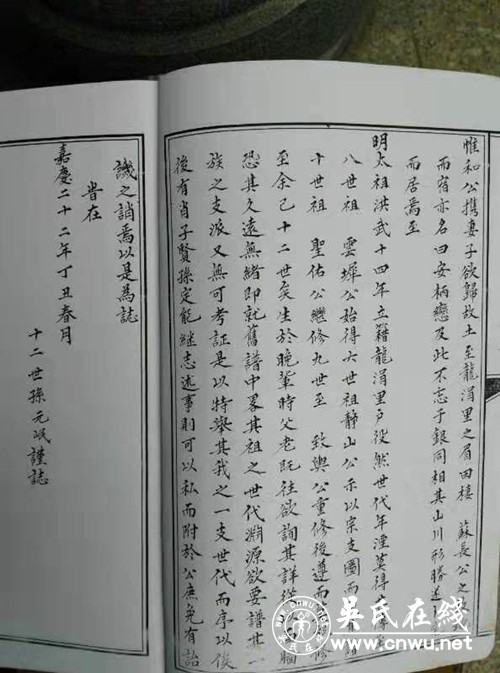 惟和公携妻子欲歸故土至龍涓里之眉田樓 蘇長公之
而宿亦名曰安柄戀及此不忘于銀同相其山川形勝
而居焉至
明太祖洪武十四年立籍龍涓里戶役然世代年湮莫得
八世祖 雲墀公始得六世祖靜山公示以宗支圖而
十世祖 聖佑公繼修九世至 致輿公重修後遵而修
至余已十二世矣生於晚輩時父老既往欲詢其詳從
恐其久遠無緒即就舊譜中畧其祖之世代淵源欲要譜其一
族之支派又無可考証是以特舉其我之一支世代而序以俟
後有肖子賢孫定能継志述事則可以私而附於公庶免有詒
譏之誚焉以是為誌
旹在
嘉慶二十二年丁丑春月
十二世孫元岷謹誌
吴氏在线
www.cnwu.net